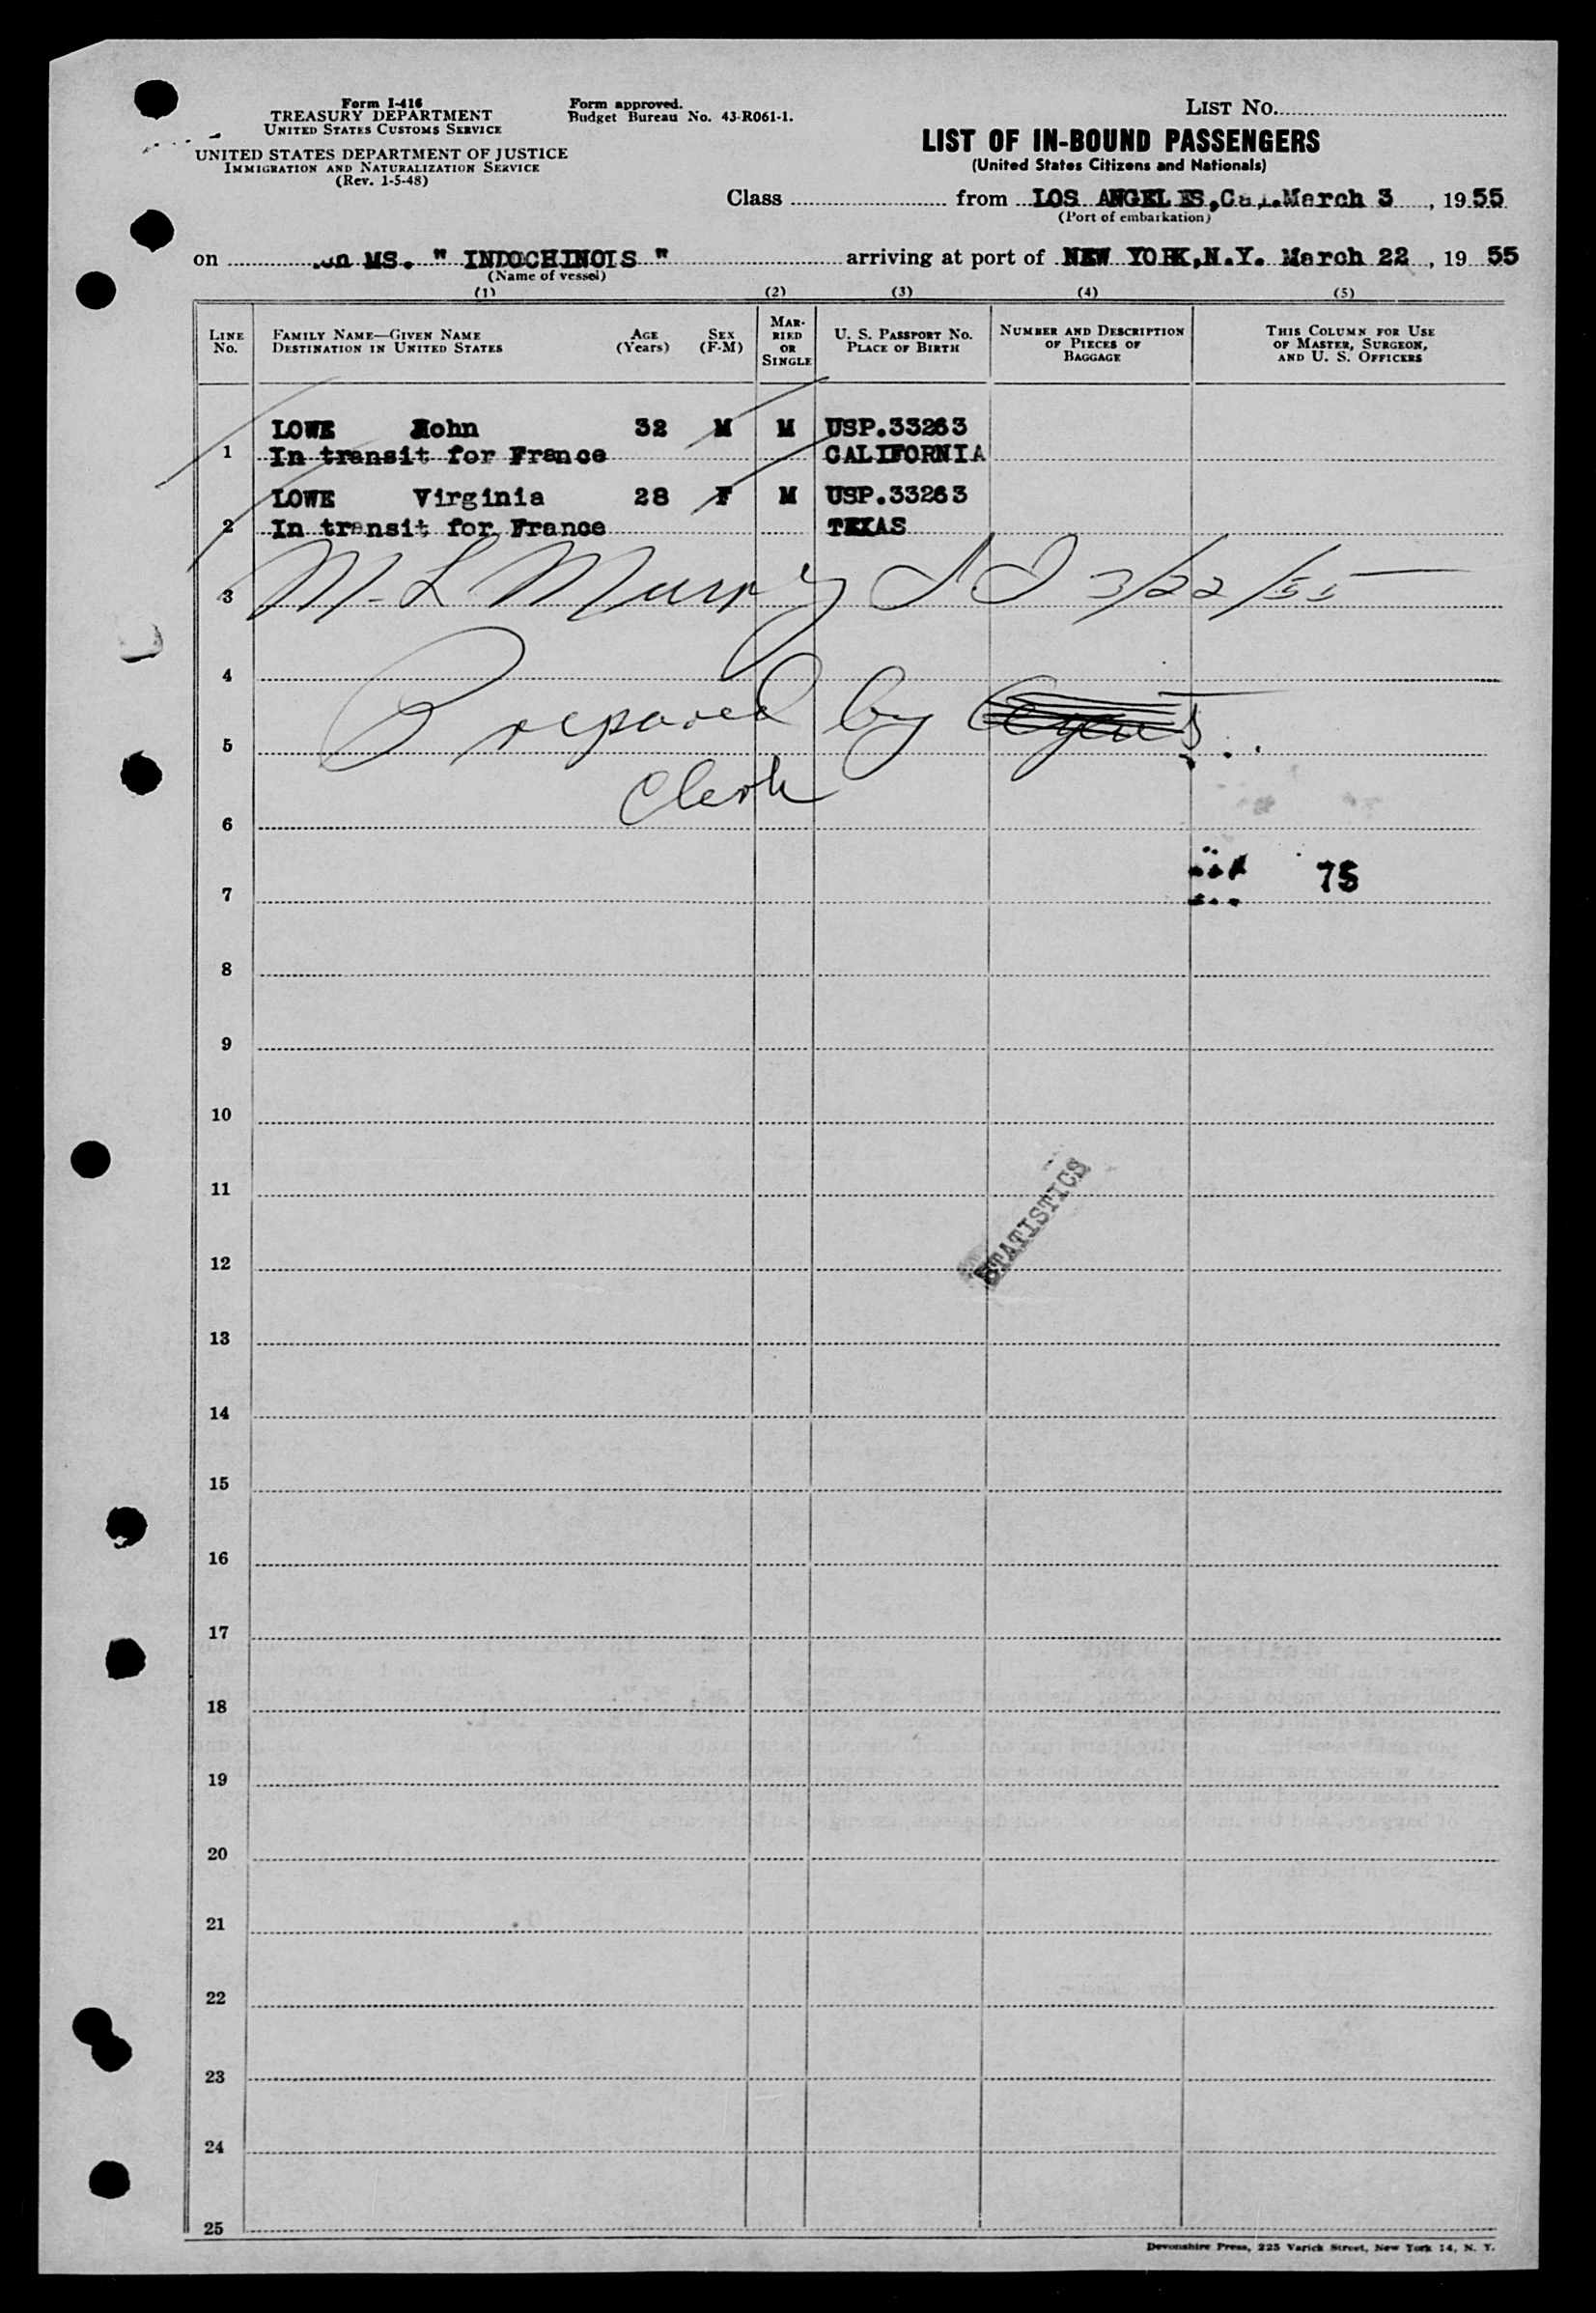 Form I-416
TREASURY DEPARTMENT
UNITED STATES CUSTOMS SERVICE
UNITED STATES DEPARTMENT OF JUSTICE
IMMIGRATION AND NATURALIZATION SERVICE
(Rev. 1-5-48)
Form approved.
Budget Bureau No. 43-R061-1.
LIST NO.
LIST OF IN-BOUND PASSENGERS
(United States Citizens and Nationals)
Class from LOS ANGELES, Cal. March 3, 1955
(Port of embarkation)
on MS. " INDOCHINOIS " arriving at port of NEW YORK, N.Y. March 22, 19 55
(Name of vessel)
(1) (2) (3) (4) (5)
LINE NO.
FAMILY NAME—GIVEN NAME
DESTINATION IN UNITED STATES
AGE (Years)
SEX (F-M)
MARRIED OR SINGLE
U. S. PASSPORT NO.
PLACE OF BIRTH
NUMBER AND DESCRIPTION OF PIECES OF BAGGAGE
THIS COLUMN FOR USE OF MASTER, SURGEON, AND U. S. OFFICERS
LOWE John 32 M M USP.33263
1 In transit for France CALIFORNIA
LOWE Virginia 28 F M USP.33263
2 In transit for France TEXAS
3 M. L. Murphy 3/22/55
4
5 Prepared by
6 Clerk
7 75
8
9
10
11
STATISTICS
12
13
14
15
16
17
18
19
20
21
22
23
24
25
Devonshire Press, 225 Varick Street, New York 14, N. Y.